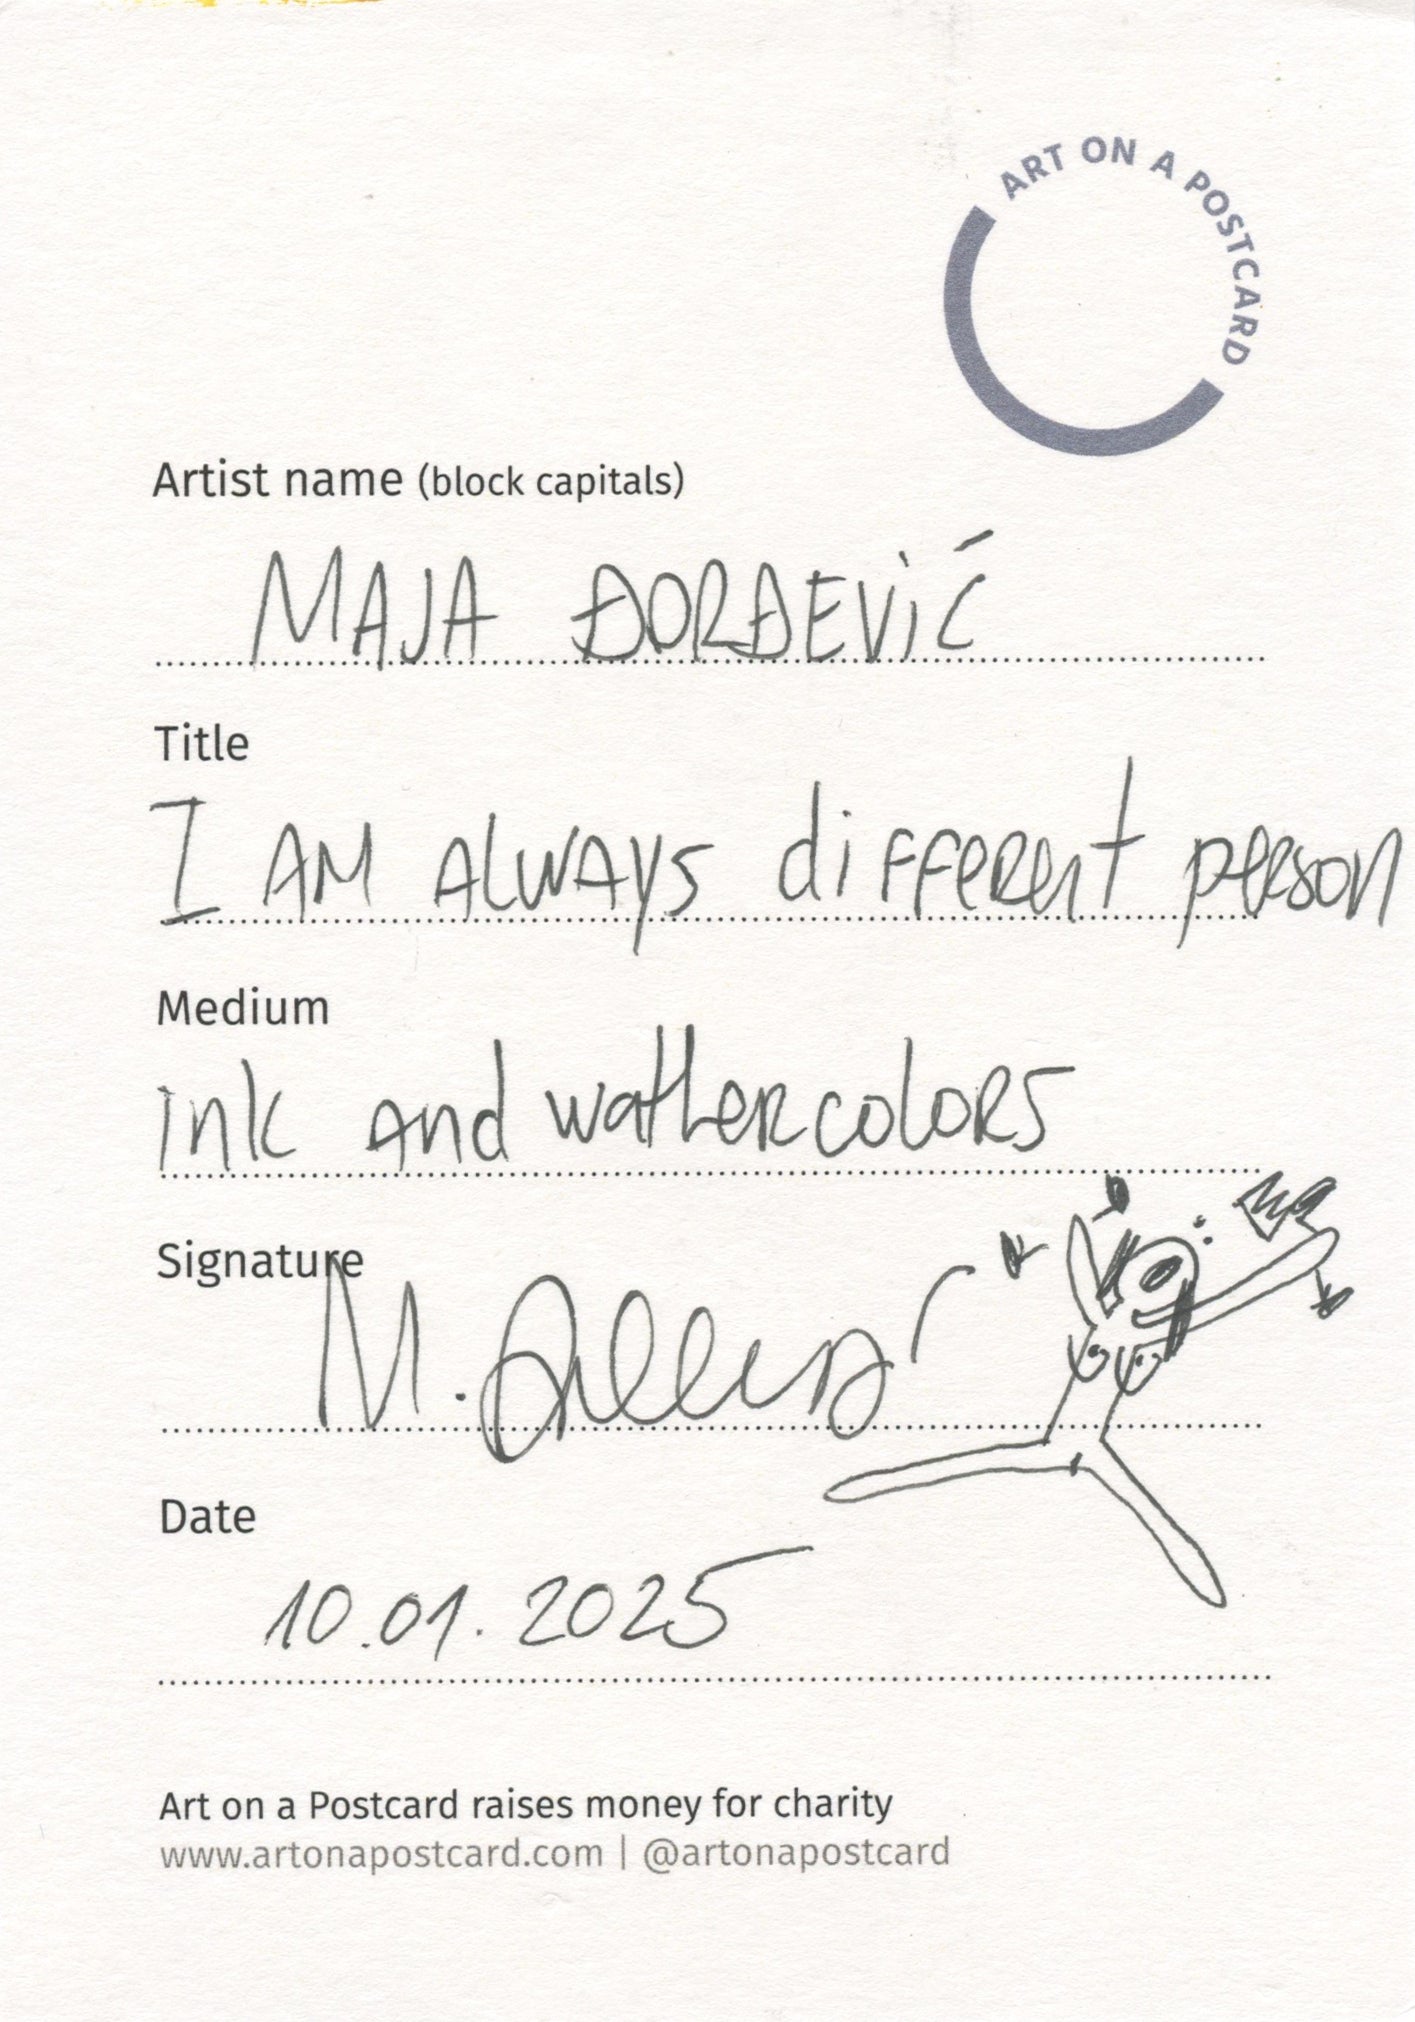 ART ON A POSTCARD
Artist name (block capitals)
MAJA ĐORĐEViĆ
Title
I AM AlwAys different person
Medium
ink and wathercolors
Signature
M.
Date
10.01.2025
Art on a Postcard raises money for charity
www.artonapostcard.com | @artonapostcard